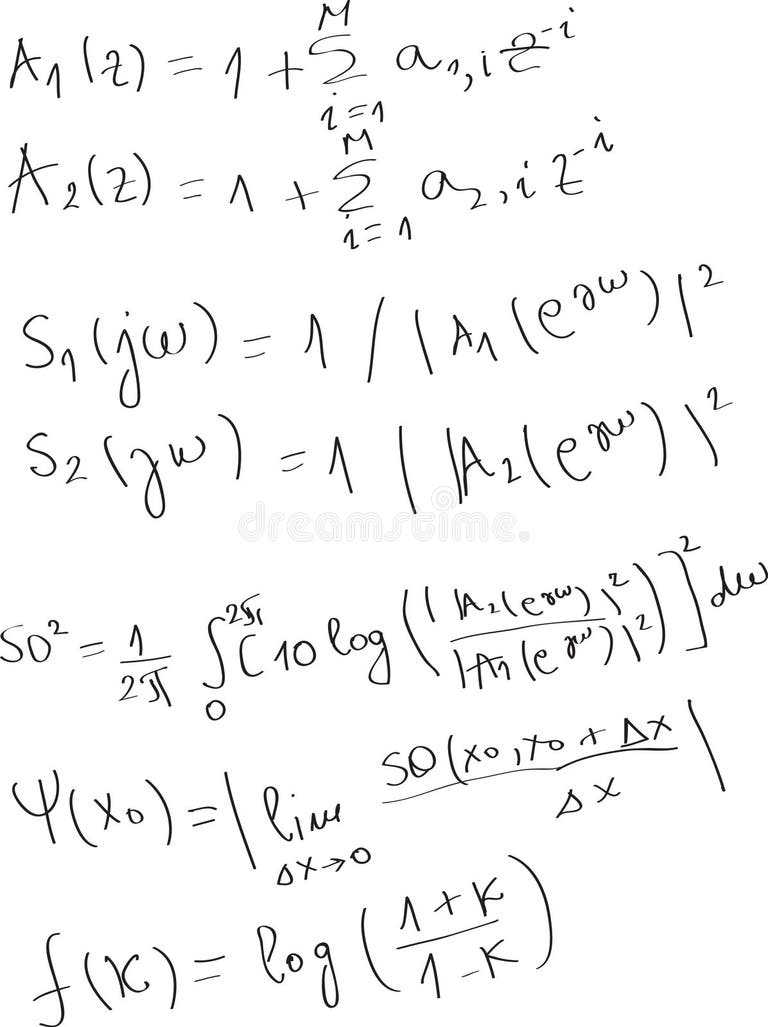 A₁(z) = 1 + Σ_{i=1}^{M} a₁,ᵢ z⁻ⁱ
A₂(z) = 1 + Σ_{i=1}^{M} a₂,ᵢ z⁻ⁱ
S₁(jω) = 1 / |A₁(e^{jω})|²
S₂(jω) = 1 / |A₂(e^{jω})|²
dreamstime.com
SD² = 1/2π ∫₀^{2π} [10 log(|A₂(e^{jω})|² / |A₁(e^{jω})|²)]² dω
Ψ(x₀) = | lim_{Δx→0} SD(x₀, x₀ + Δx / Δx |
f(K) = log((1+K)/(1-K))